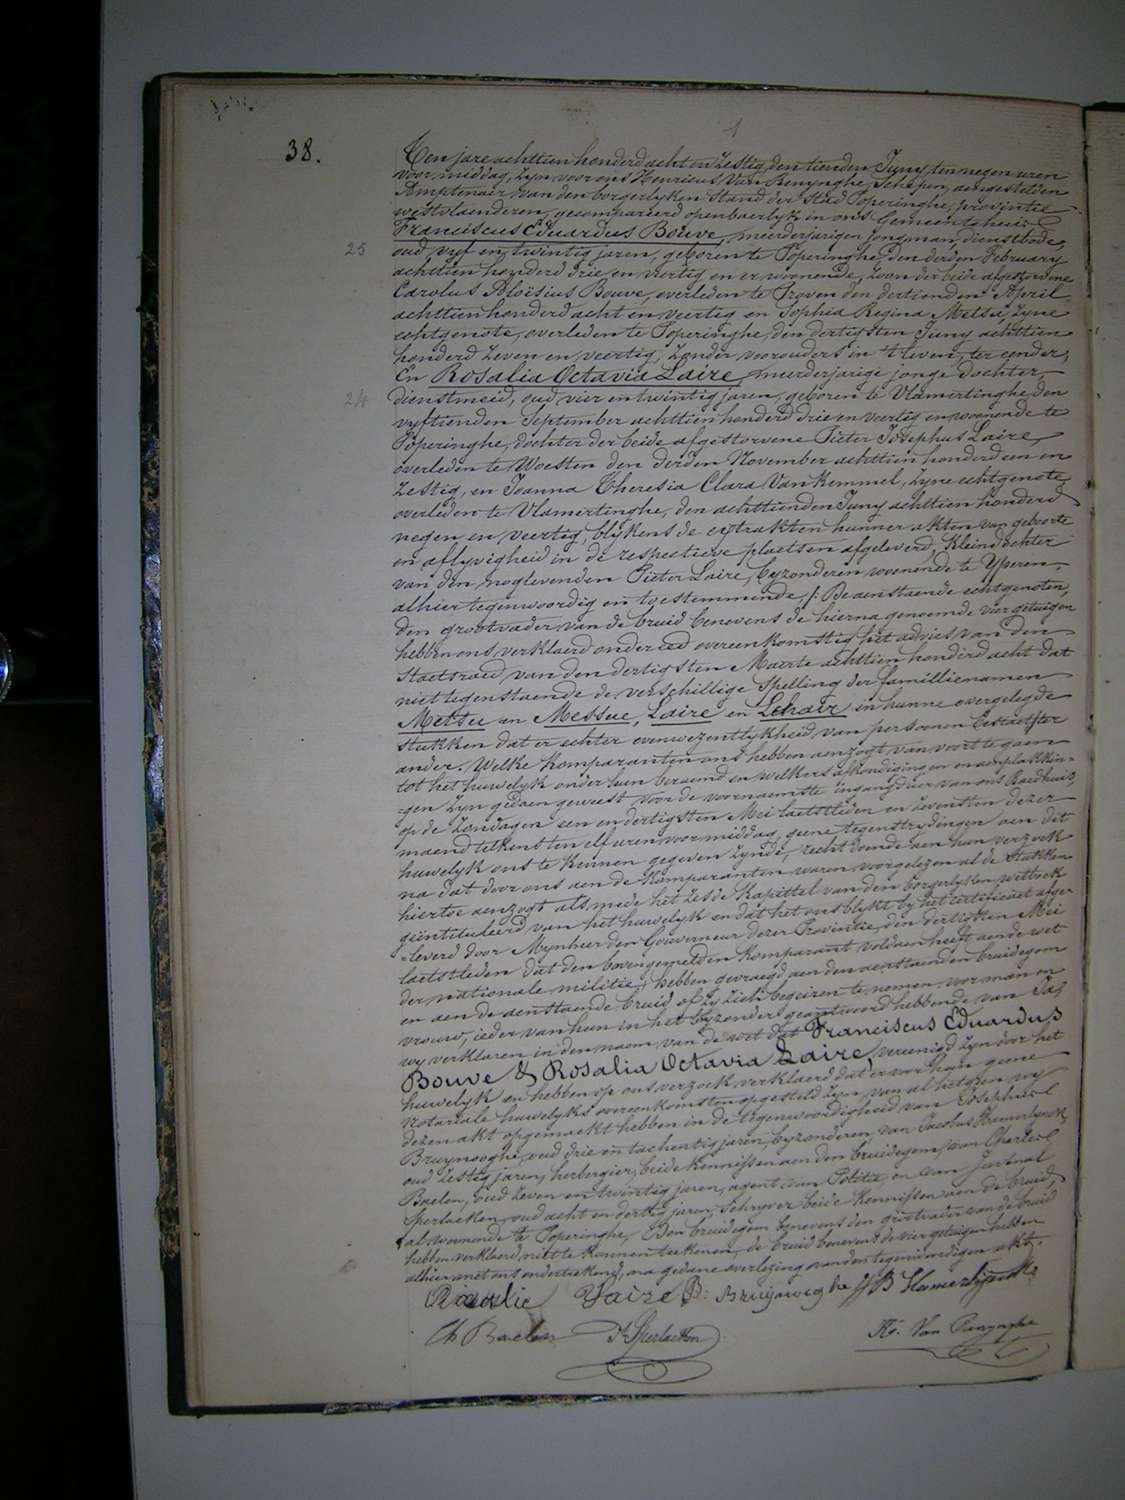 38.
Ten jare achttien honderd acht en zestig, den tienden Juny, ten negen uren
voormiddag, zyn voor ons Henricus Van Renynghe, Schepen, aengestelden
Amptenaer van den borgerlyken Stand der Stad Poperinghe, provintie
westvlaenderen, gecompareerd openbaerlyk in ons Gemeentehuis
Franciscus Eduardus Bouve, meerderjarigen jongman, dienstbode,
25
oud vyf en twintig jaren, geboren te Poperinghe, den derden February
achttien honderd drie en veertig en er woonende, zoon der beide afgestorvene
Carolus Aloïsius Bouve, overleden te Proven den dertienden April
achttien honderd acht en veertig en Sophia Regina Metsu, zyne
echtgenote, overleden te Poperinghe, den dertigsten Juny achttien
honderd zeven en veertig, zonder voorouders in 't leven, ter eender,
En Rosalia Octavia Laire, meerderjarige jonge dochter,
24
dienstmeid, oud vier en twintig jaren, geboren te Vlamertinghe, den
vyftienden September achttien honderd drie en veertig en woonende te
Poperinghe, dochter der beide afgestorvene Pieter Josephus Laire,
overleden te Woesten den derden November achttien honderd een en
zestig, en Joanna Theresia Clara Van Kemmel, zyne echtgenote,
overleden te Vlamertinghe, den achttienden Juny achttien honderd
negen en veertig, blykens de extrakten hunner akten van geboorte
en aflyvigheid in de respectieve plaetsen afgeleverd, kleindochter
van den noglevenden Pieter Laire, byzonderen woonende te Yperen,
alhier tegenwoordig en toestemmende. De aenstaende echtgenoten,
den grootvader van de bruid benevens de hierna genoemde vier getuigen
hebben ons verklaerd onder eed overeenkomstig het advies van den
Staetsraed van den dertigsten Maerte achttien honderd acht dat
niet tegenstaende de verschillige spelling der famillienamen
Metsu en Messue, Laire en Lehair in hunne overgelegde
stukken dat er echter evenwezentlykheid van persoonen bestaet, ter
ander. Welke komparanten ons hebben aenzogt van voort te gaen
tot het huwelyk onder hun beraemd en welkers afkondigingen en aenplakkin-
gen zyn gedaen geweest voor de voornaemste ingangdeur van ons Raedhuis,
op de zondagen een en dertigsten Mei laetstleden en zevensten dezer
maend telkens ten elf uren voormiddag, geene tegenstrydingen aen dit
huwelyk ons te kennen gegeven zynde, recht doende aen hun verzoek
na dat door ons aen de komparanten waren voorgelezen al de stukken
hiertoe aenzogt als mede het zesde kapittel van den borgerlyken wetboek
geïntituleerd van het huwelyk en dat het ons blykt by het certificaet afge-
leverd door Mynheer den Gouverneur dezer Provintie, den dertigsten Mei
laetstleden dat den bovengemelden komparant voldaen heeft aende wet
der nationale militie, hebben gevraegd aen den aenstaenden bruidegom
en aen de aenstaende bruid of zy zich begeiren te nemen voor man en
vrouw, ieder van hun in het byzonder geantwoord hebbende van Ja,
wy verklaren in den naem van de wet dat Franciscus Eduardus
Bouve & Rosalia Octavia Laire, vereenigd zyn door het
huwelyk en hebben op ons verzoek verklaerd dat er voor hun geene
notariale huwelyks overeenkomsten opgesteld zyn van al hetgeen wy
dezen akt opgemaekt hebben in de tegenwoordigheid van Josephus
Bruynooghe, oud drie en tachentig jaren, byzonderen, van Jacobus Hamerlynck
oud zestig jaren, herbergier, beide kennissen aen den bruidegom, van Charles
Baelen, oud zeven en twintig jaren, agent van Politie en van Juvenal
Sperlaeken, oud acht en dertig jaren, schryver beide kennissen aen de bruid,
al woonende te Poperinghe. Den bruidegom benevens den grootvader van de bruid
hebben verklaerd niet te kunnen teekenen, de bruid benevens de vier getuigen hebben
alhier met ons onderteekend, na gedane overlezing van den tegenwoordigen akt.
Rosalie Laire Bruynooghe JB Hamerlynck
Ch Baelen J Sperlaeken Hri. Van Renynghe